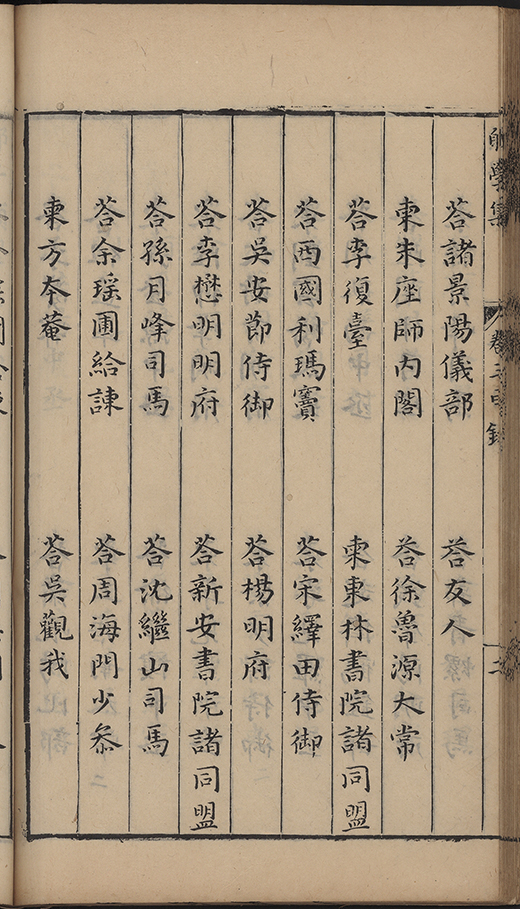 荅諸景陽儀部　荅友人
柬朱座師内閣　荅徐魯源太常
荅李復臺　柬東林書院諸同盟
荅西國利瑪竇　荅宋繹田侍御
荅吳安節侍御　荅楊明府
荅李懋明明府　荅新安書院諸同盟
荅孫月峰司馬　荅沈繼山司馬
荅余瑶圃給諫　荅周海門少叅
柬方本菴　荅吳觀我
學集
卷三目錄